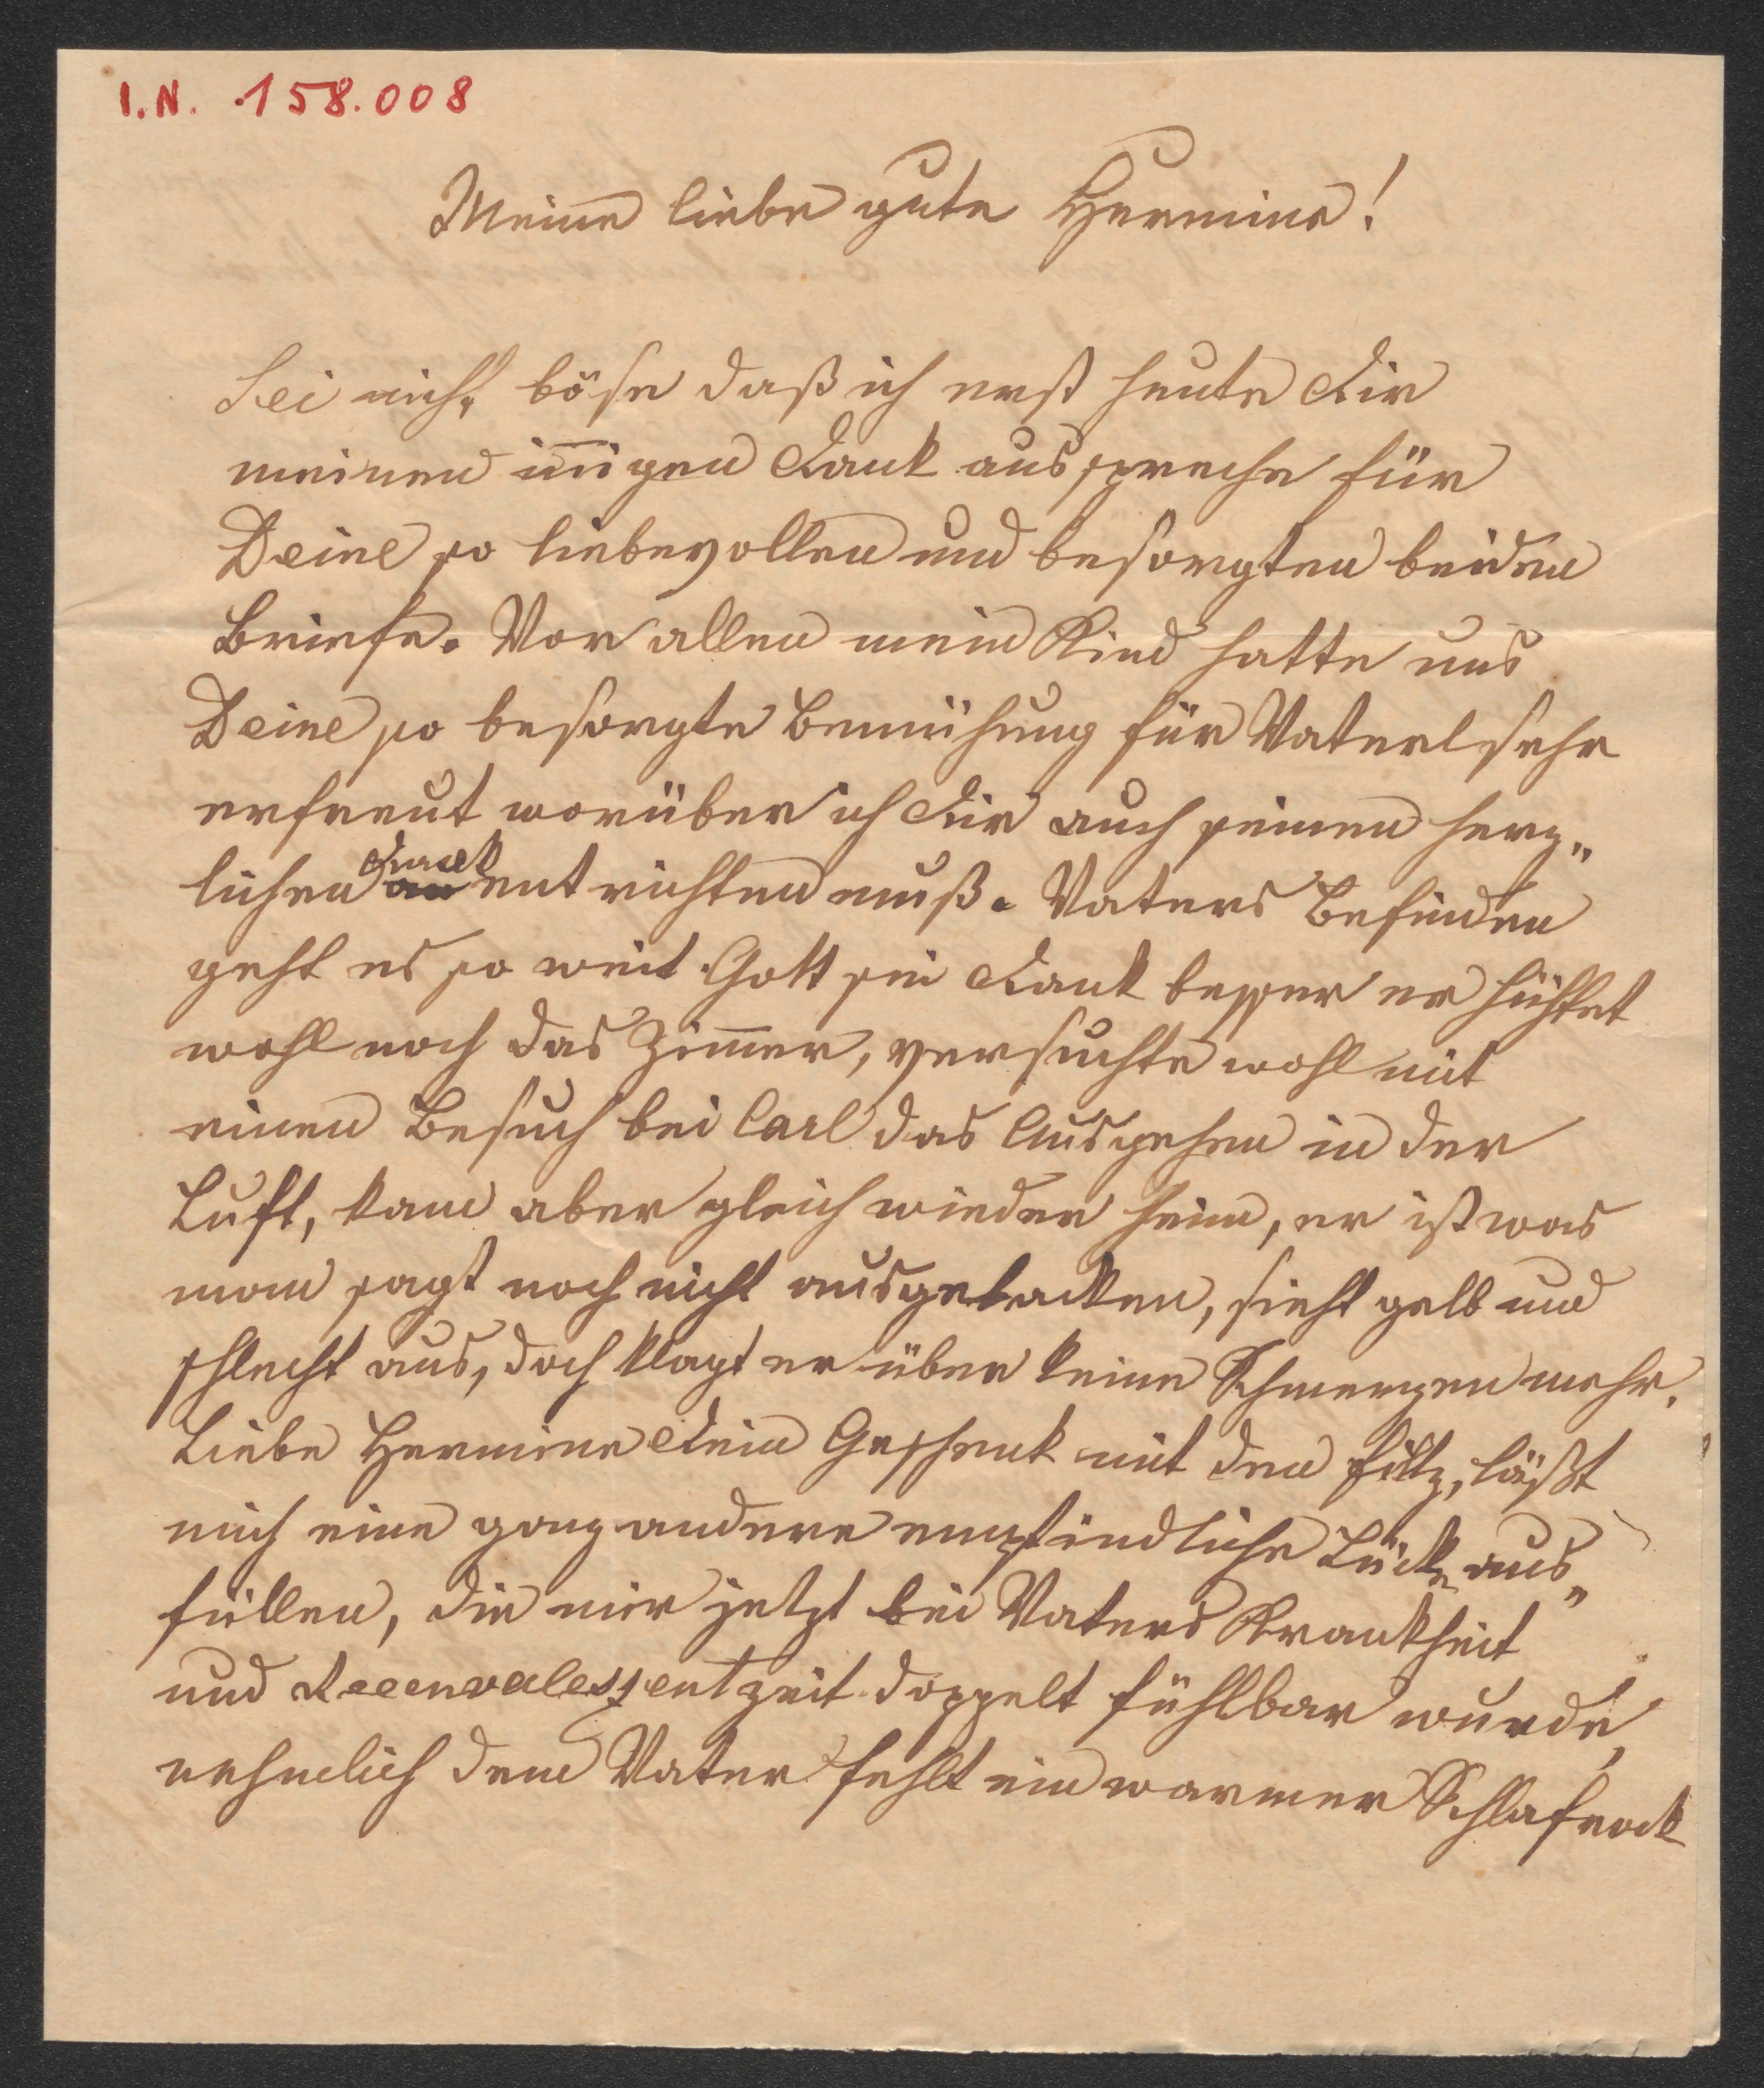 I.N. 158.008
Meine liebe gute Hermine!
Sei nicht böse daß ich erst heute Dir
meinen in̄igen Dank ausspreche für
Deine so liebevollen und besorgten beiden
Briefe. Vor allen mein Kind hatte uns
Deine so besorgte Bemühung für Vaterl sehr
erfreut worüber ich Dir auch seinen herz„
lichen Dank entrichten muß. Vaters Befinden
geht es so weit Gott sei Dank besser er hüthet
wohl noch das Zim̄er, versuchte wohl mit
einen Besuch bei Carl das Ausgehen in der
Luft, kam aber gleich wieder heim, er ist was
man sagt noch nicht ausgebacken, sieht gelb und
schlecht aus, doch klagt er über keine Schmerzen mehr.
Liebe Hermine Dein Geschenk mit den Filtz, läßt
mich eine ganz andere empfindliche Lücke aus„
füllen, die mir jetzt bei Vaters Krankheit
und Reconvaleszentzeit doppelt fühlbar wurde,
nehmlich dem Vater fehlt ein warmer Schlafrock